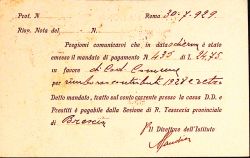 Prot. N Roma 30-7-929.
Risp. Nota del N.
Pregiomi comunicarvi che, in data odierna è stato
emesso il mandato di pagamento N 435 di L. 2475
in favore di
per 1928
Detto mandato, tratto sul conto corrente presso la Cassa D.D. e
Prestiti è pagabile dalla Sezione di R. Tesoreria provinciale
di Brescia
Il Direttore dell'Istituto